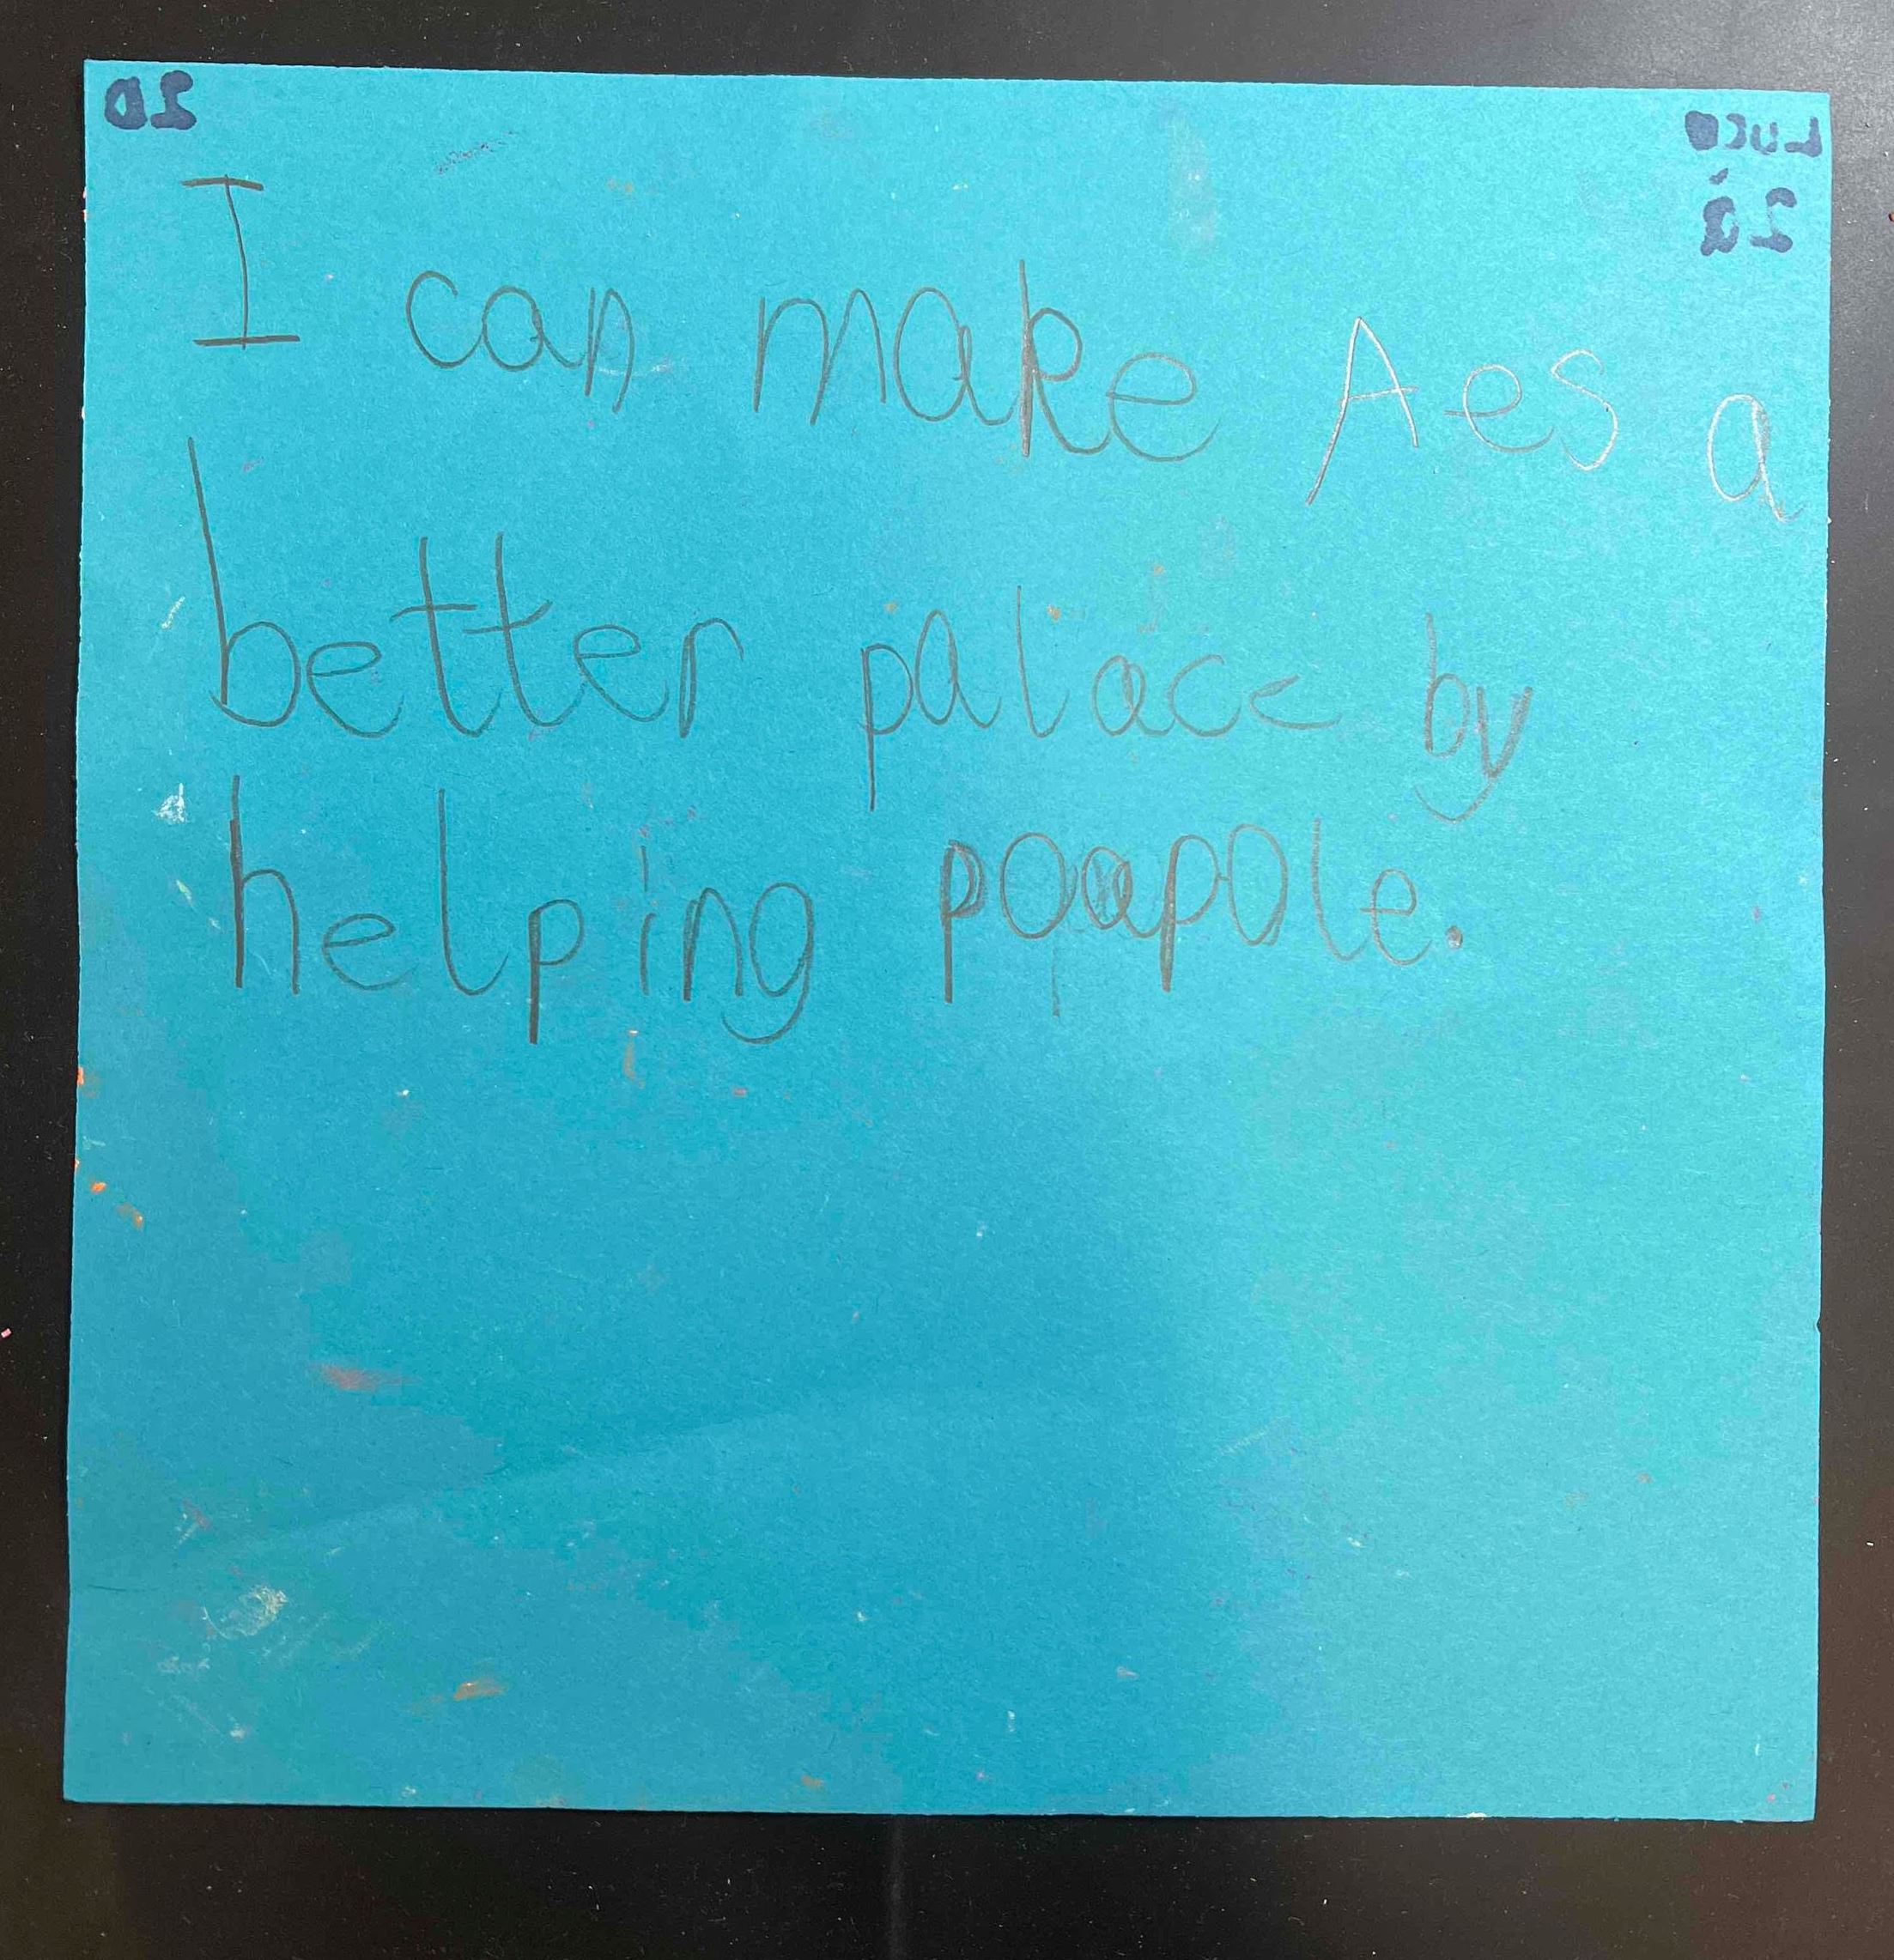 2D
Luca
I can make Aes a
better palace by
helping poapole.